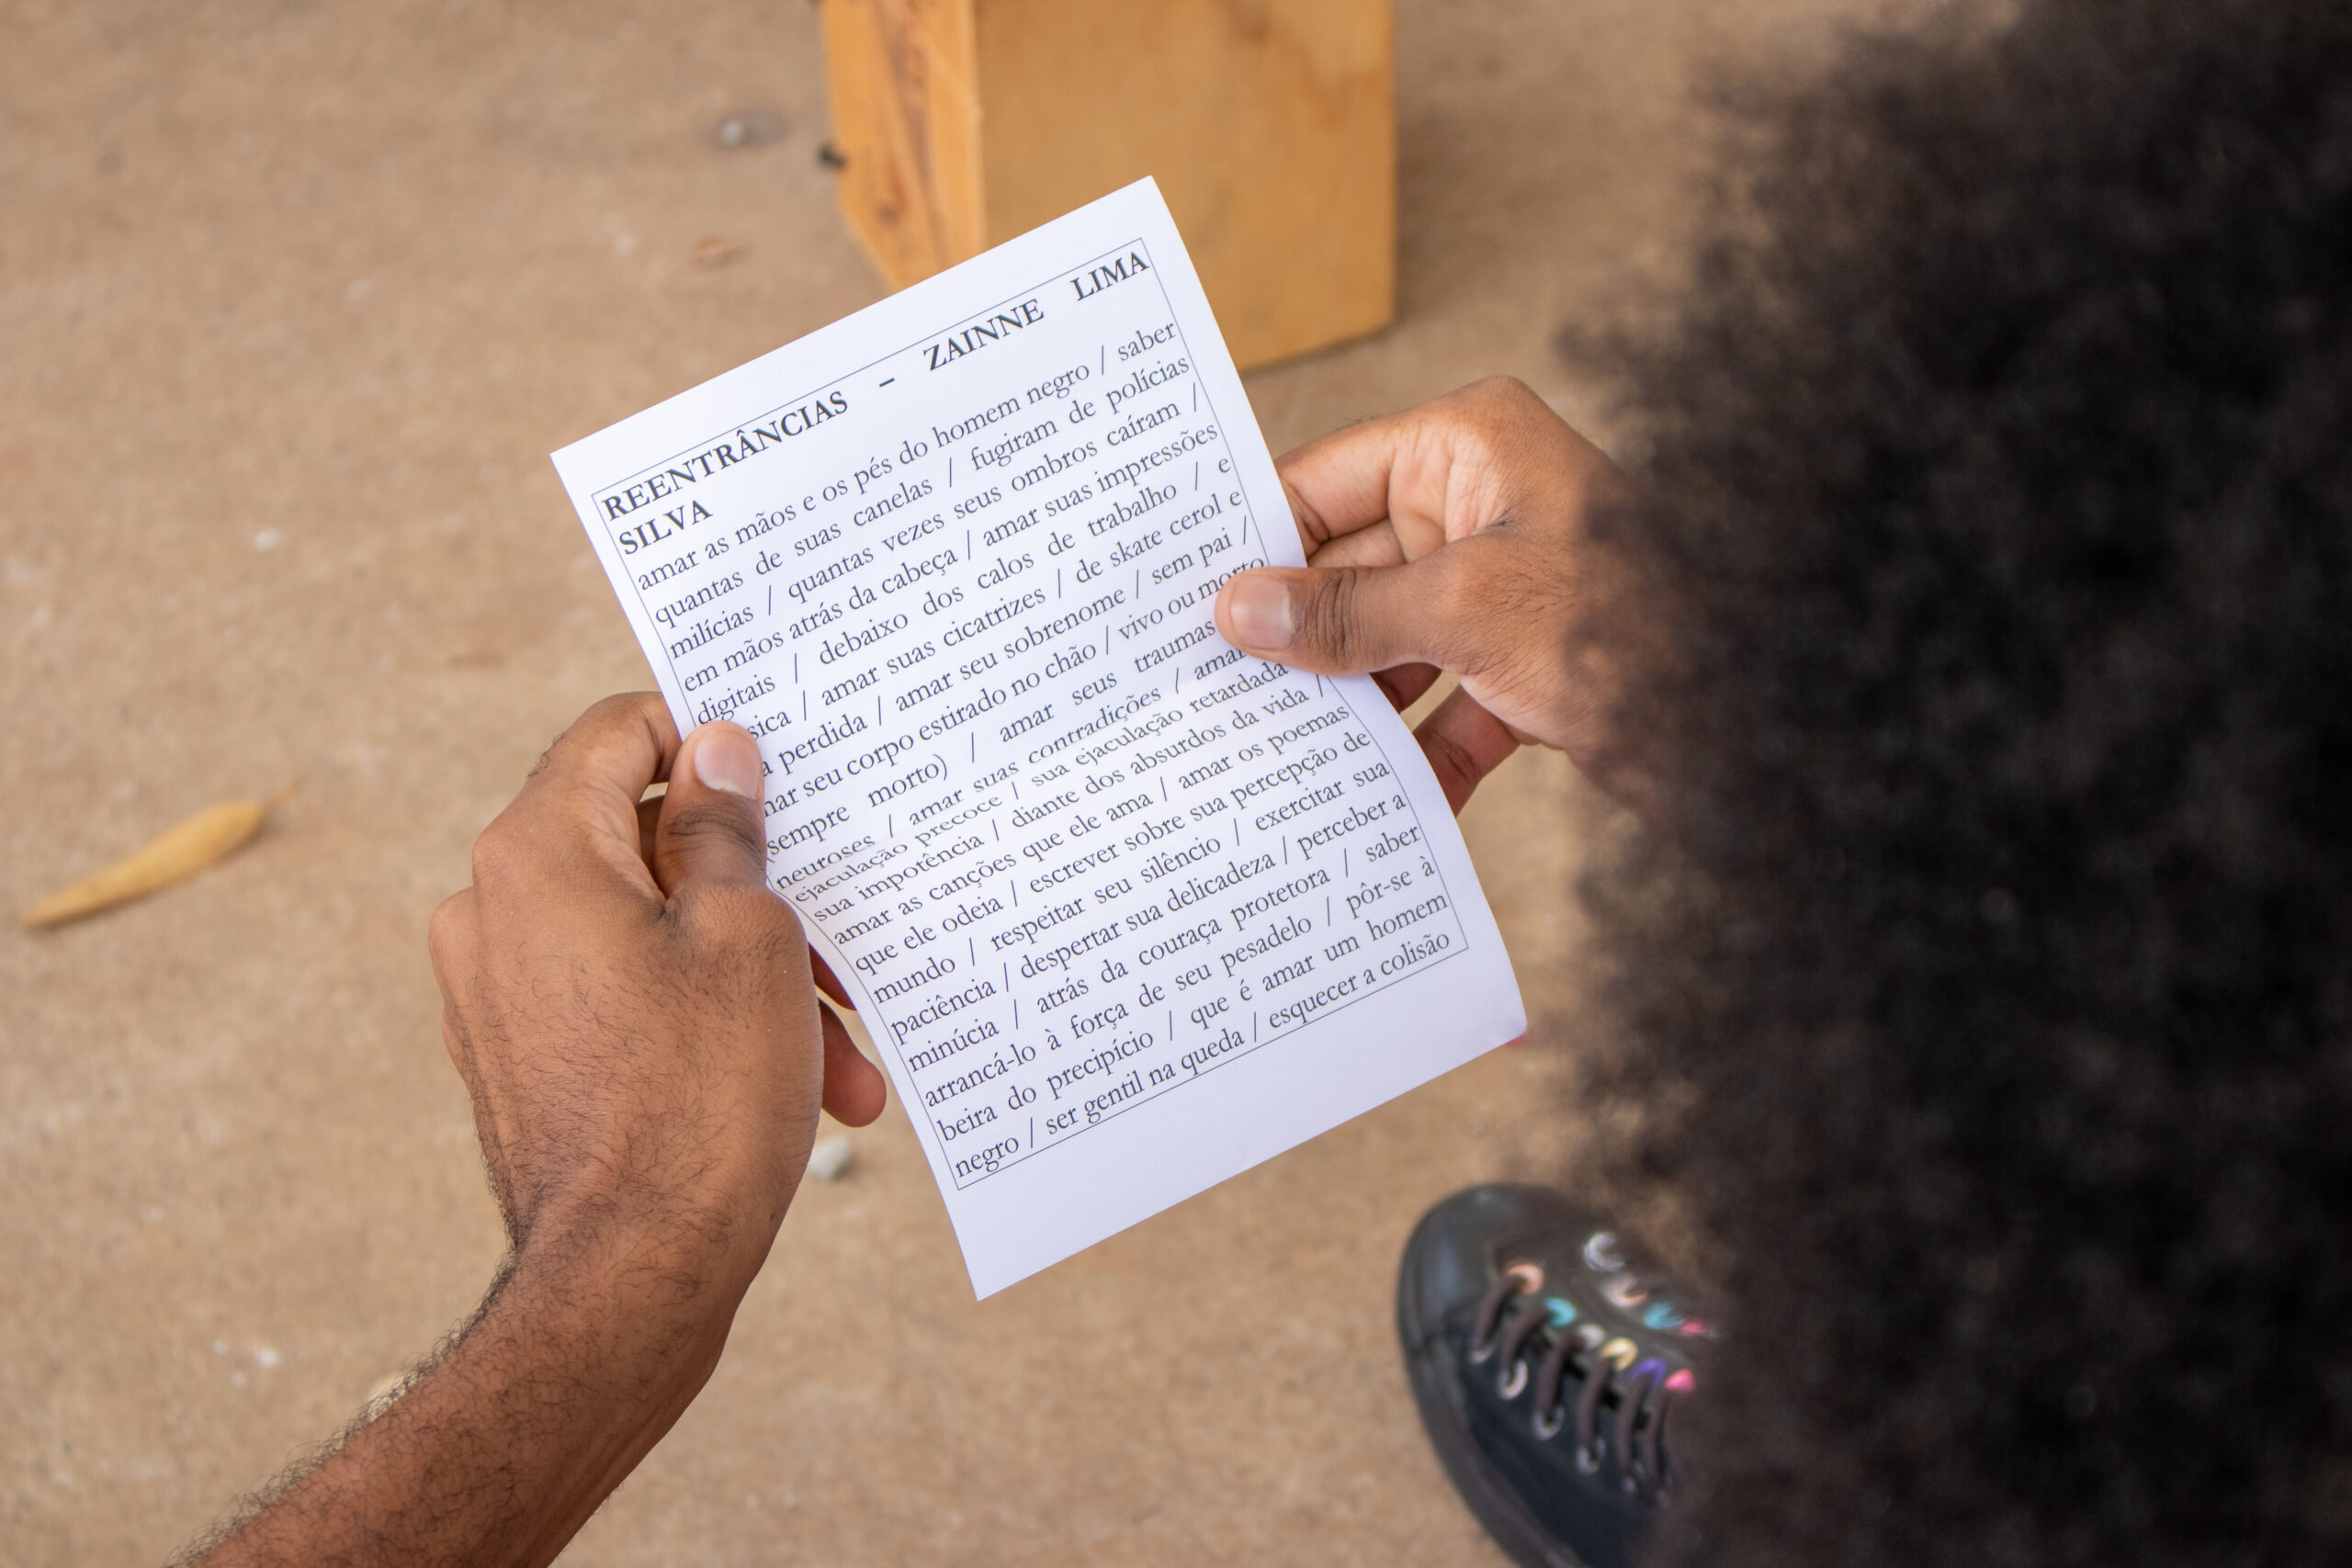 REENTRÂNCIAS – ZAINNE LIMA
SILVA
amar as mãos e os pés do homem negro / saber
quantas de suas canelas / fugiram de polícias
milícias / quantas vezes seus ombros caíram /
em mãos atrás da cabeça / amar suas impressões
digitais / debaixo dos calos de trabalho / e
/ amar suas cicatrizes / de skate cerol e
perdida / amar seu sobrenome / sem pai /
seu corpo estirado no chão / vivo ou morto
(sempre morto) / amar seus traumas
neuroses / amar suas contradições / amar
ejaculação precoce / sua ejaculação retardada
sua impotência / diante dos absurdos da vida /
amar as canções que ele ama / amar os poemas
que ele odeia / escrever sobre sua percepção de
mundo / respeitar seu silêncio / exercitar sua
paciência / despertar sua delicadeza / perceber a
minúcia / atrás da couraça protetora / saber
arrancá-lo à força de seu pesadelo / pôr-se à
beira do precipício / que é amar um homem
negro / ser gentil na queda / esquecer a colisão